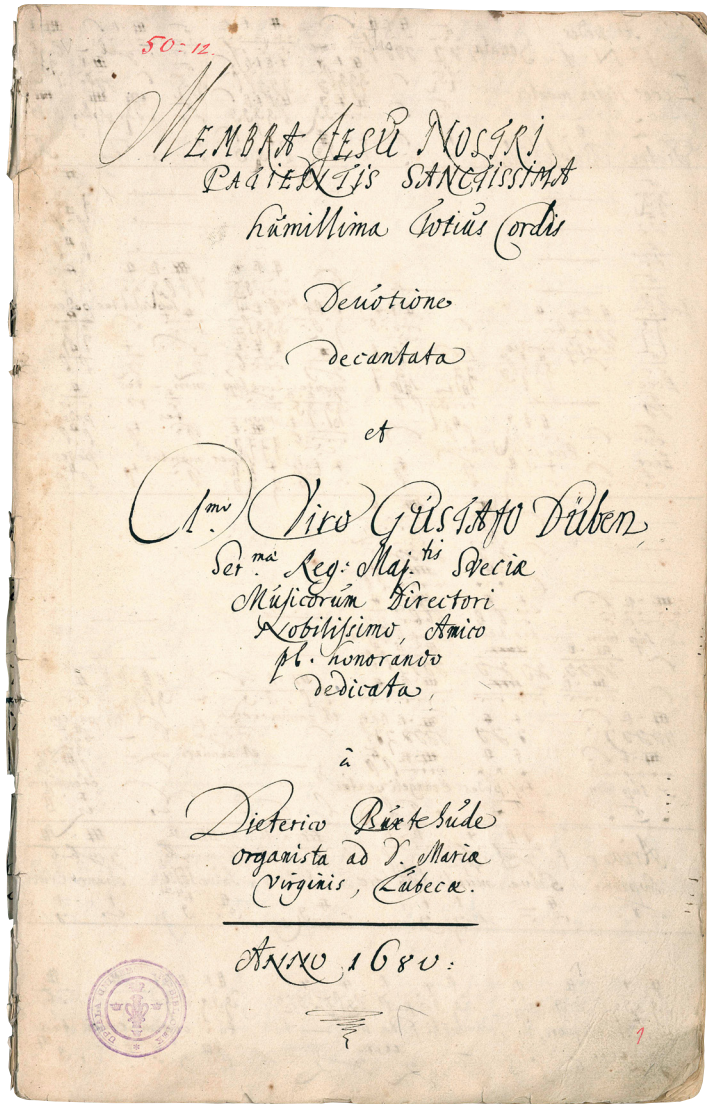 50:12.
MEMBRA JESU NOSTRI
PATIENTIS SANCTISSIMA
humillima Totius Cordis
Devotione
decantata
et
Clmo Viro GUSTAVO Düben
Ser.ma Reg: Maj.tis Sveciæ
Musicorum Directori
Nobilissimo, Amico
pl. honorando
dedicata,
à
Dieterico Buxtehude
organista ad S. Mariæ
Virginis, Lübecæ.
ANNO 1680:
1